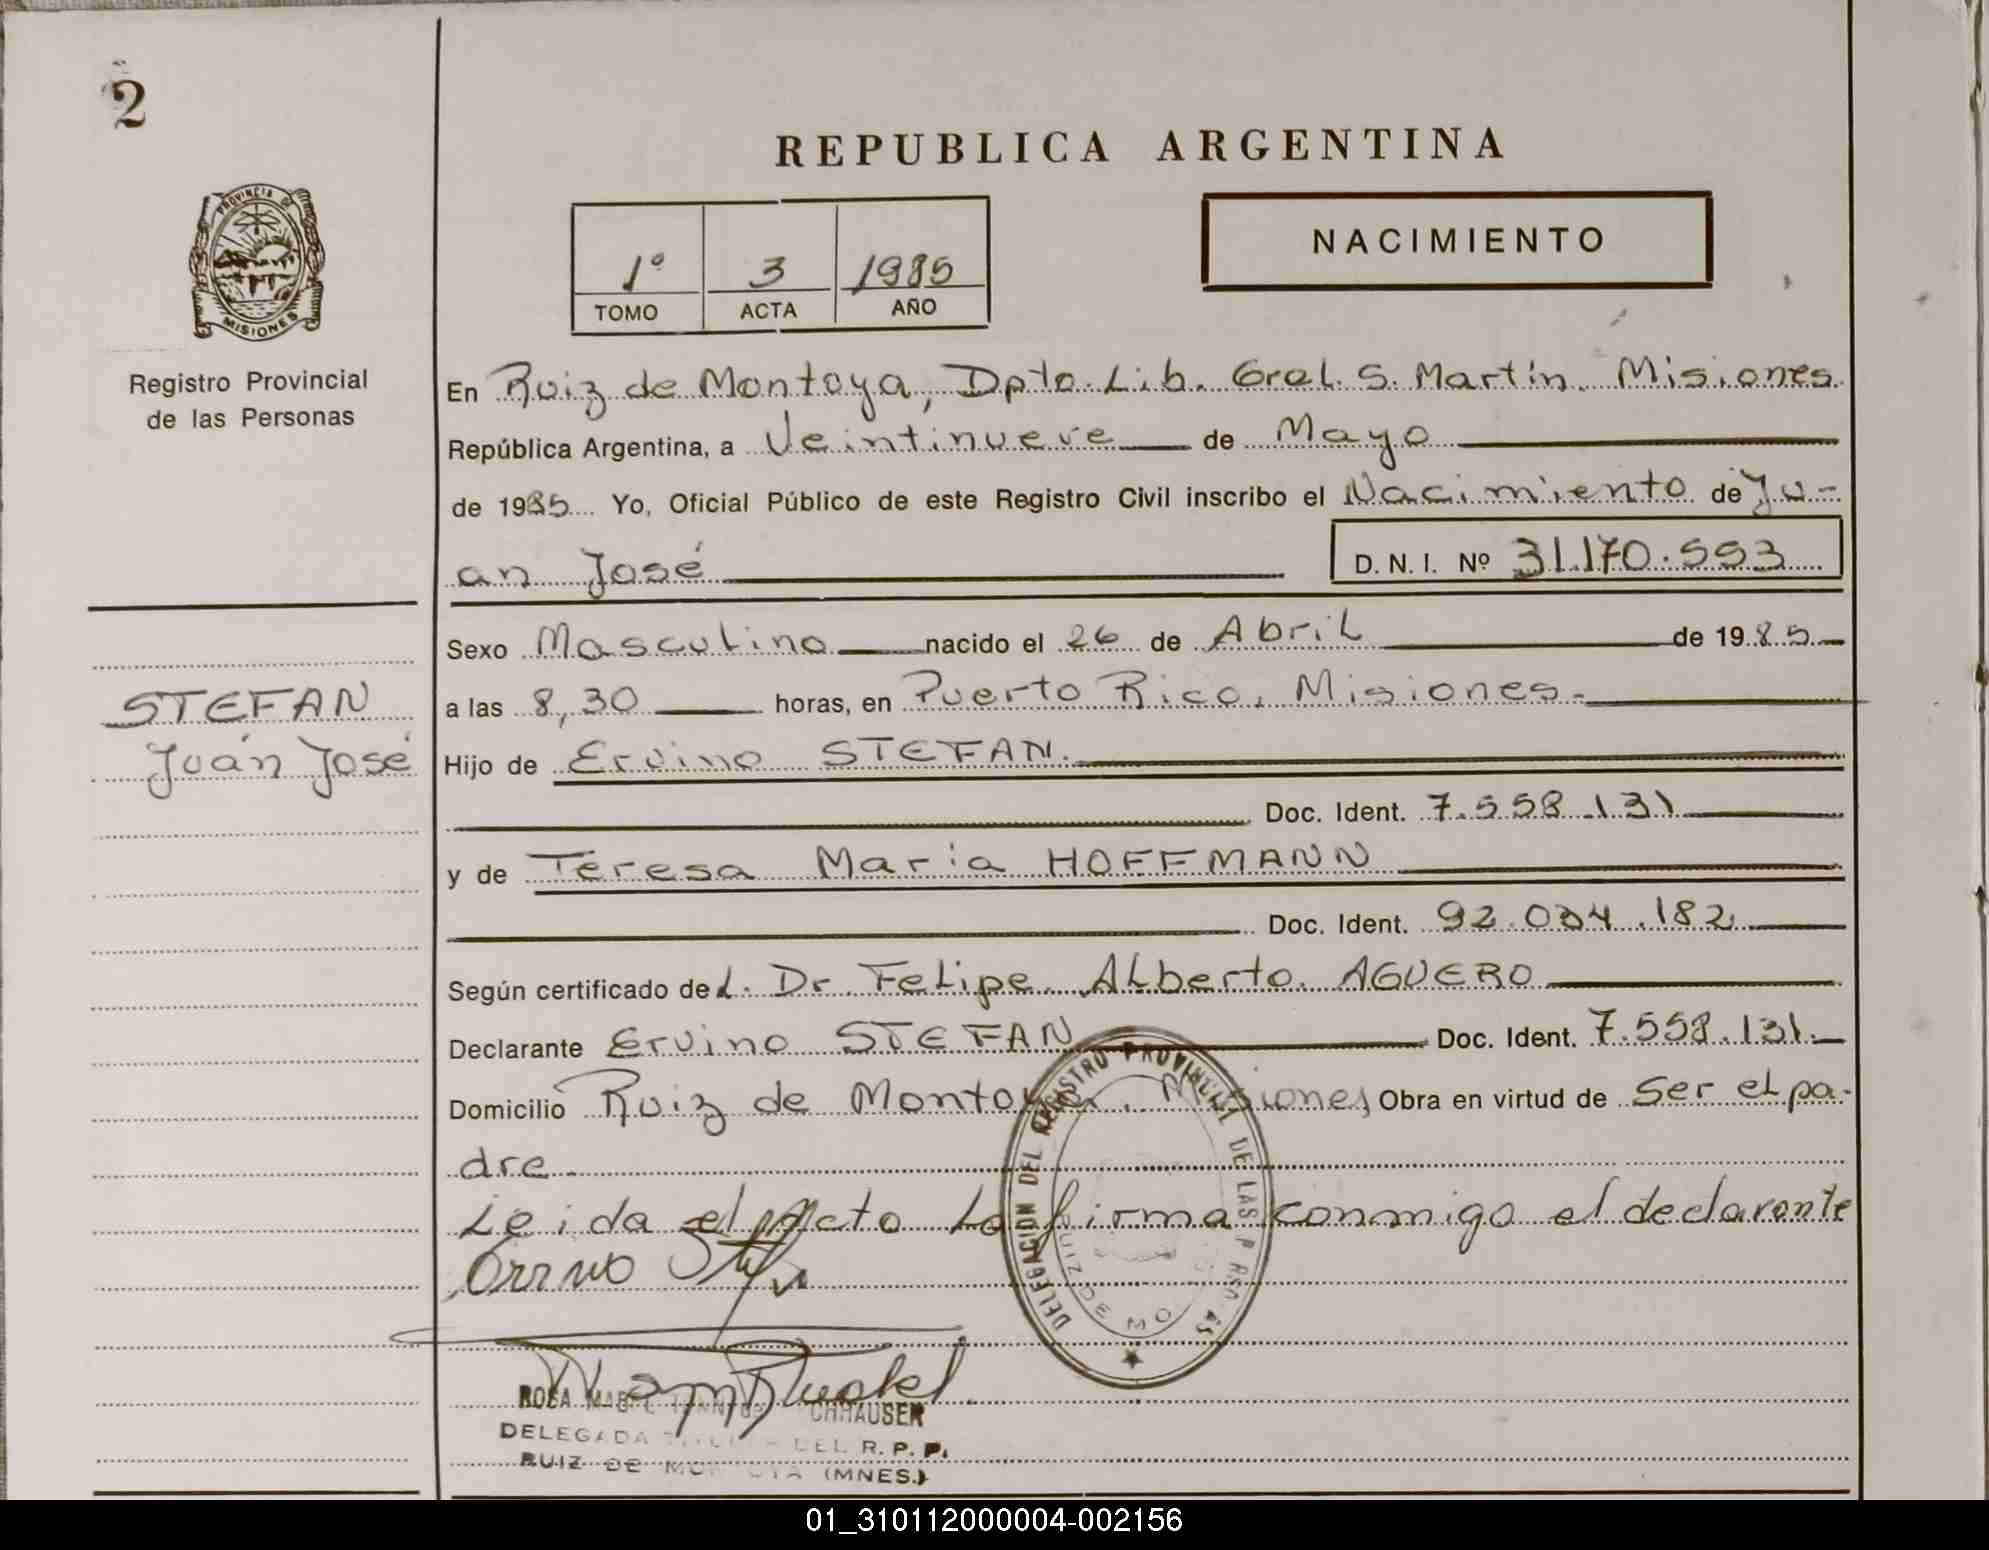 2
REPUBLICA ARGENTINA
PROVINCIA DE
MISIONES
Registro Provincial
de las Personas
1º 3 1985
TOMO ACTA AÑO
NACIMIENTO
En Ruiz de Montoya, Dpto. Lib. Gral. S. Martín. Misiones.
República Argentina, a Veintinueve de Mayo
de 1985 Yo, Oficial Público de este Registro Civil inscribo el Nacimiento de Ju-
an José D. N. I. Nº 31.170.553
Sexo Masculino nacido el 26 de Abril de 1985
STEFAN
a las 8,30 horas, en Puerto Rico, Misiones.-
Juan José
Hijo de Ervino STEFAN.
Doc. Ident. 7.558.131
y de Teresa Maria HOFFMANN
Doc. Ident. 92.034.182
Según certificado del. Dr. Felipe Alberto AGUERO
Declarante Ervino STEFAN Doc. Ident. 7.558.131.
Domicilio Ruiz de Montoya, Misiones, Obra en virtud de Ser el pa-
dre.
Leida el Acta La firma conmigo el declarante
DELEGACION DEL REGISTRO PROVINCIAL DE LAS PERSONAS
RUIZ DE MO
ROSA
DELEGADA DEL R. P. P.
RUIZ DE MONTOYA (MNES.)
01_310112000004-002156